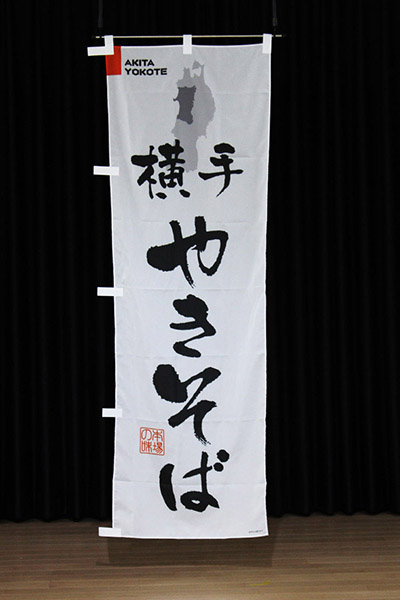 AKITA
YOKOTE
横手
やきそば
本場
の味